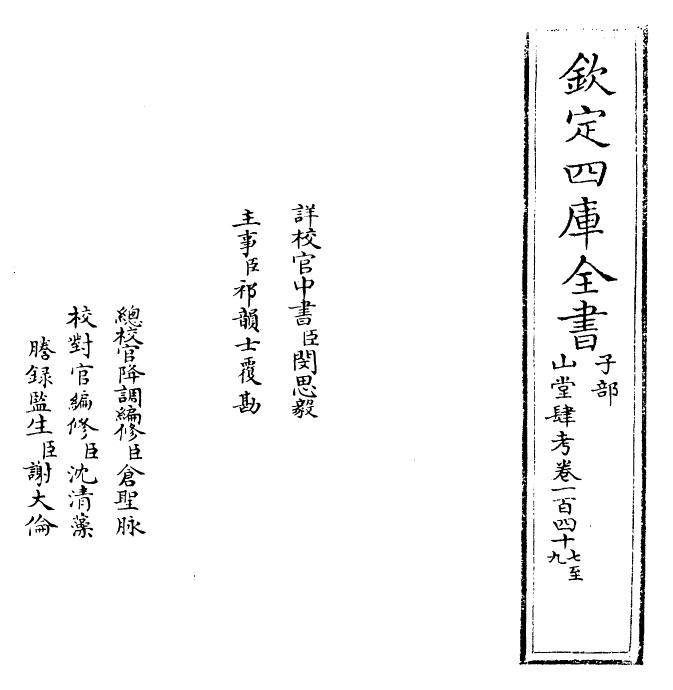 欽定四庫全書
子部
山堂肆考卷一百四十七至九
詳校官中書臣閔思毅
主事臣祁韻士覆勘
總校官降調編修臣倉聖脉
校對官編修臣沈清藻
謄録監生臣謝大倫